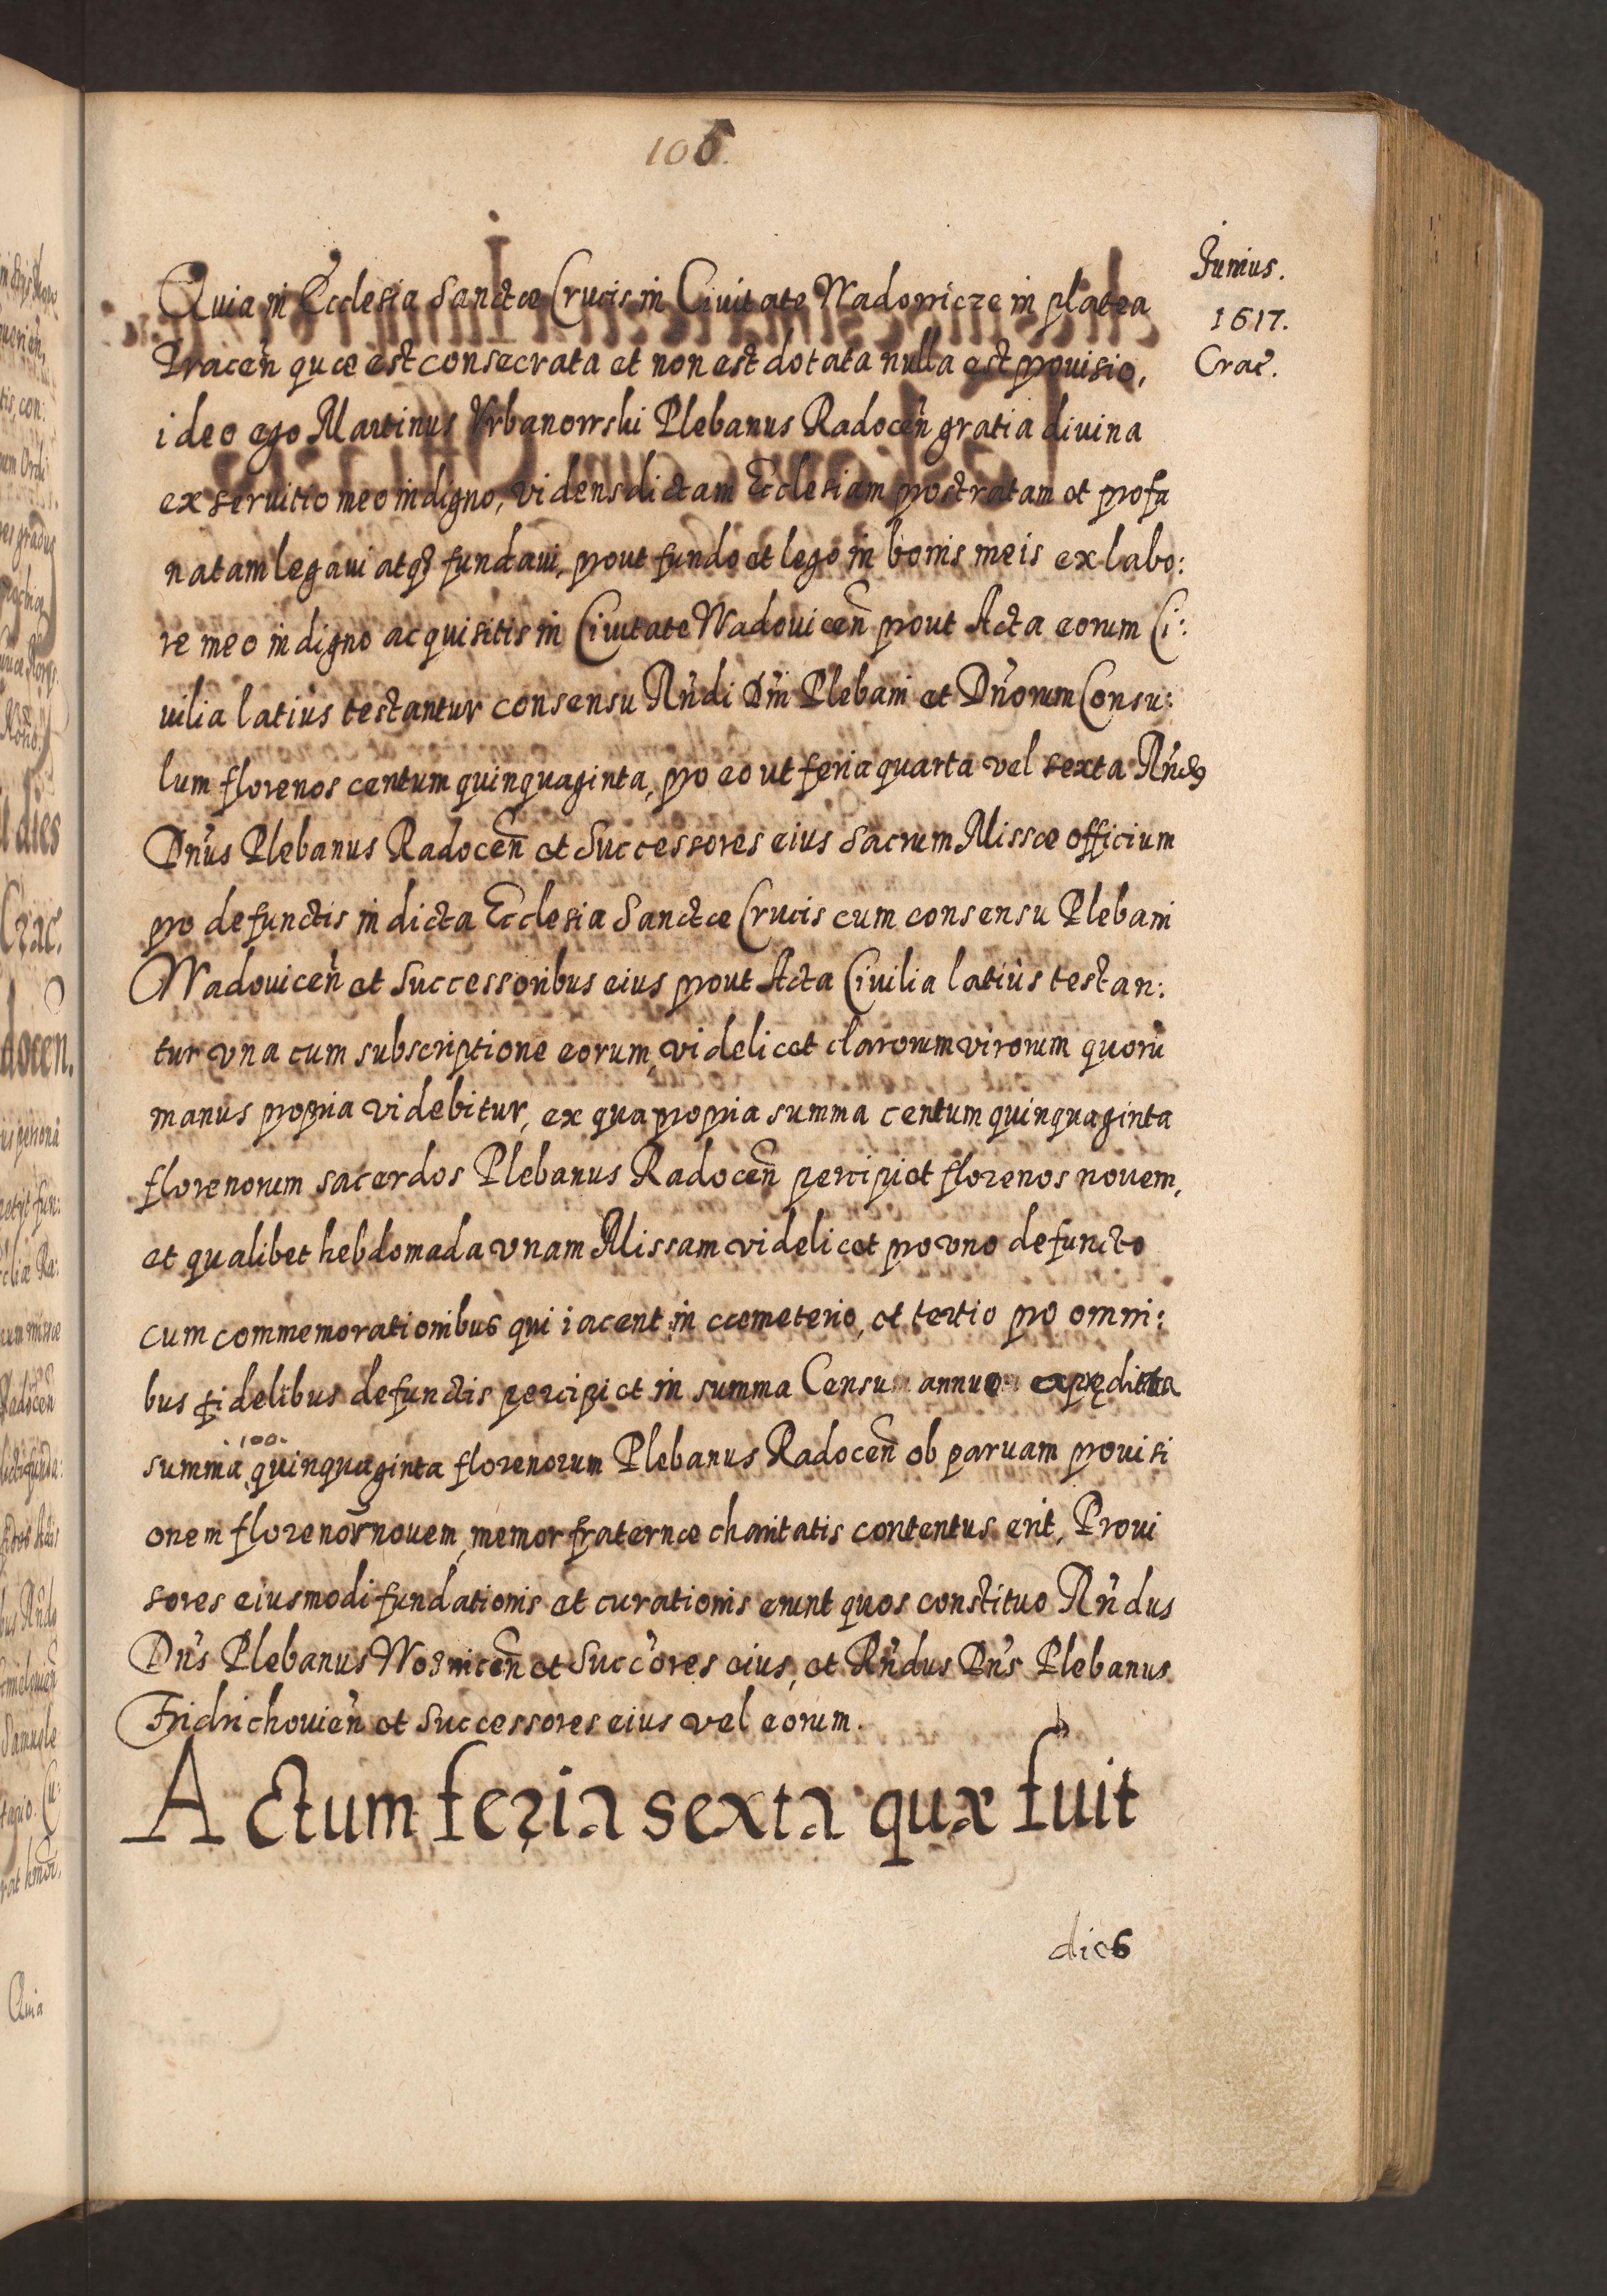 106.
Junius.
1617.
Crac.
Quia in Ecclesia Sanctæ Crucis in Civitate Wadowicze in platea
Pracen̄ quæ est consecrata et non est dotata nulla est prouisio,
ideo ego Martinus Vrbanowski Plebanus Radocen̄ gratia diuina
ex seruitio meo indigno, videns dictam Ecclesiam prostratam et profa
natam legaui atq₃ fundaui, prout fundo et lego in bonis meis ex labo:
re meo indigno acquisitis in Ciuitate Wadouicen̄ prout Acta eorum Ci:
uilia latius testantur consensu Rn̄di Dn̄i Plebani et Dn̄orum Consu:
lum florenos centum quinquaginta, pro eo ut feria quarta vel sexta Rn̄dꝰ
Dn̄us Plebanus Radocen̄ et Successores eius Sacrum Missæ officium
pro defunctis in dicta Ecclesia Sanctæ Crucis cum consensu Plebani
Wadouicen̄ et Successoribus eius prout Acta Ciuilia latiùs testan:
tur vna cum subscriptione eorum, videlicet clarorum virorum quorū
manus propria videbitur, ex qua propria summa centum quinquaginta
florenorum sacerdos Plebanus Radocen̄ percipiet florenos nouem,
et qualibet hebdomada vnam Missam videlicet pro vno defuncto
cum commemorationibus qui iacent in cœmeterio, et tertio pro omni:
bus fidelibus defunctis percipiet in summa Censu annuo ex prędicta
100.
summa quinquaginta florenorum Plebanus Radocen̄ ob paruam prouisi
onem florenor̄ nouem, memor fraternæ charitatis contentus erit, Proui
sores eiusmodi fundationis et curationis erunt quos constituo Rn̄dus
Dn̄s Plebanus Woznicen̄ et Succ̄ores eius, et Rn̄dus Dn̄s Plebanus
Fridrichouien̄ et Successores eius vel eorum.
Actum feria sexta quæ fuit
dies